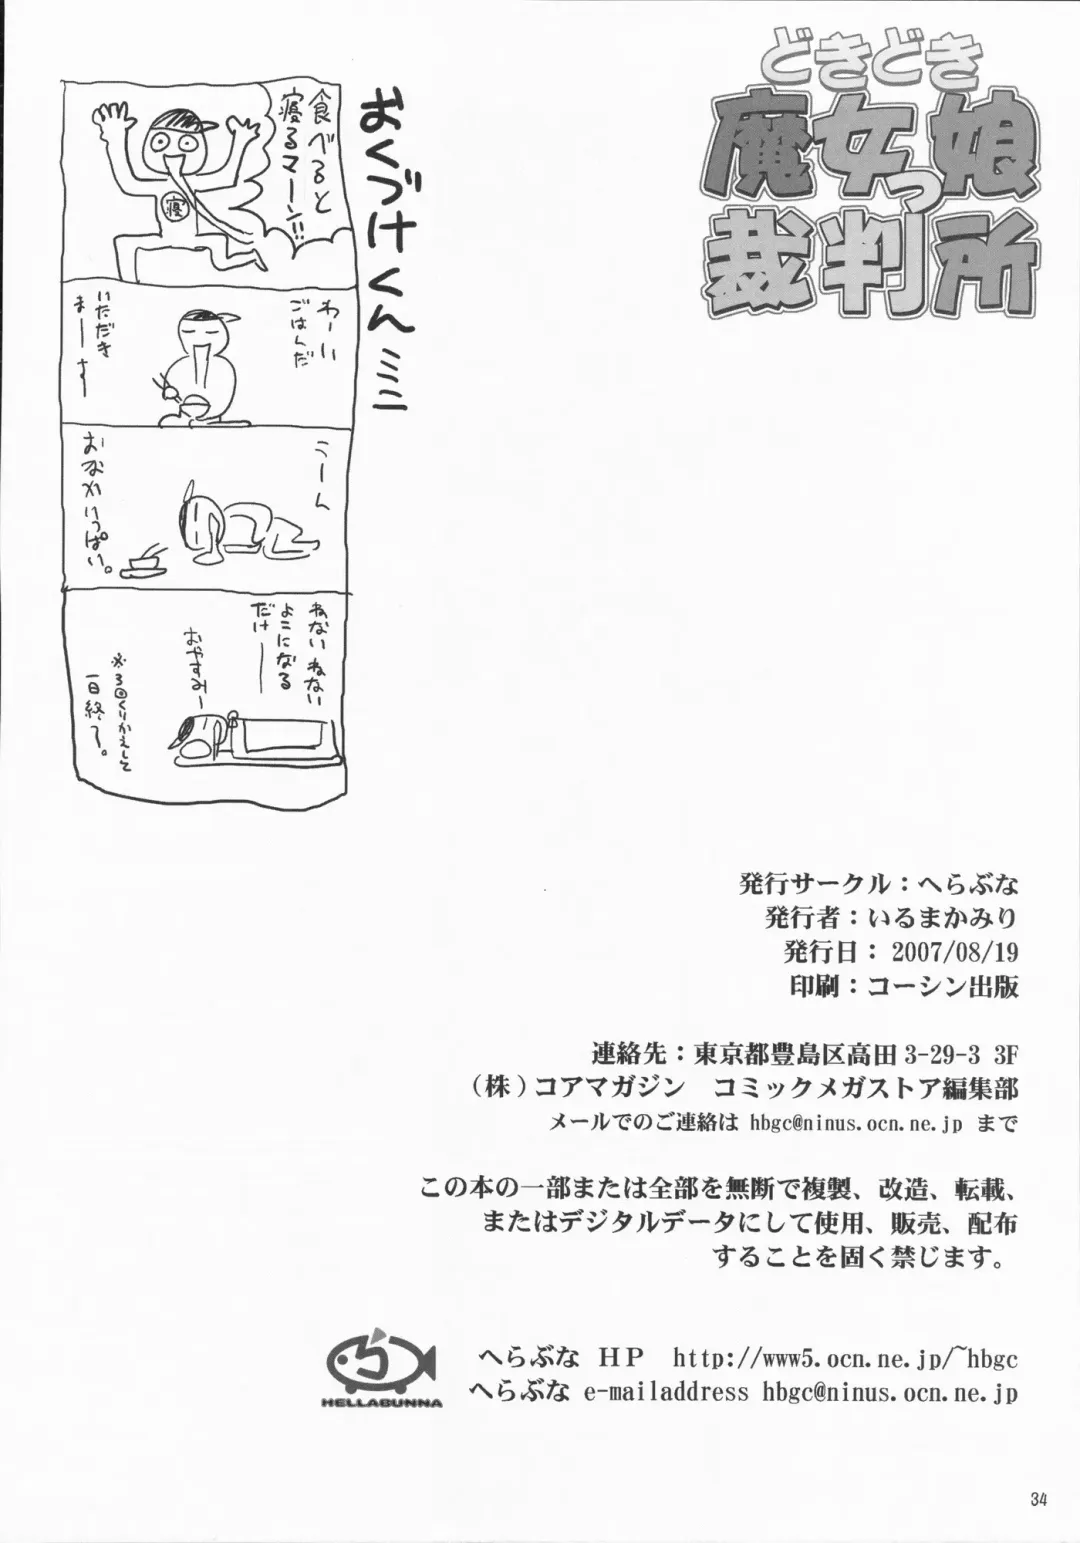 どきどき
魔女っ娘
裁判所
おくづけくん ミニ
食べると
寝るマーン!!
寝
わーい
ごはんだ
いただき
まーす
うーん
おなかいっぱい。
ねない ねない
よこになる
だけ――
おやすみー
※3回くりかえして
一日終了。
発行サークル：へらぶな
発行者：いるまかみり
発行日： 2007/08/19
印刷：コーシン出版
連絡先：東京都豊島区高田 3-29-3 3F
（株）コアマガジン　コミックメガストア編集部
メールでのご連絡は hbgc@ninus.ocn.ne.jp まで
この本の一部または全部を無断で複製、改造、転載、
またはデジタルデータにして使用、販売、配布
することを固く禁じます。
へらぶな HP http://www5.ocn.ne.jp/~hbgc
へらぶな e-mailaddress hbgc@ninus.ocn.ne.jp
HELLABUNNA
34